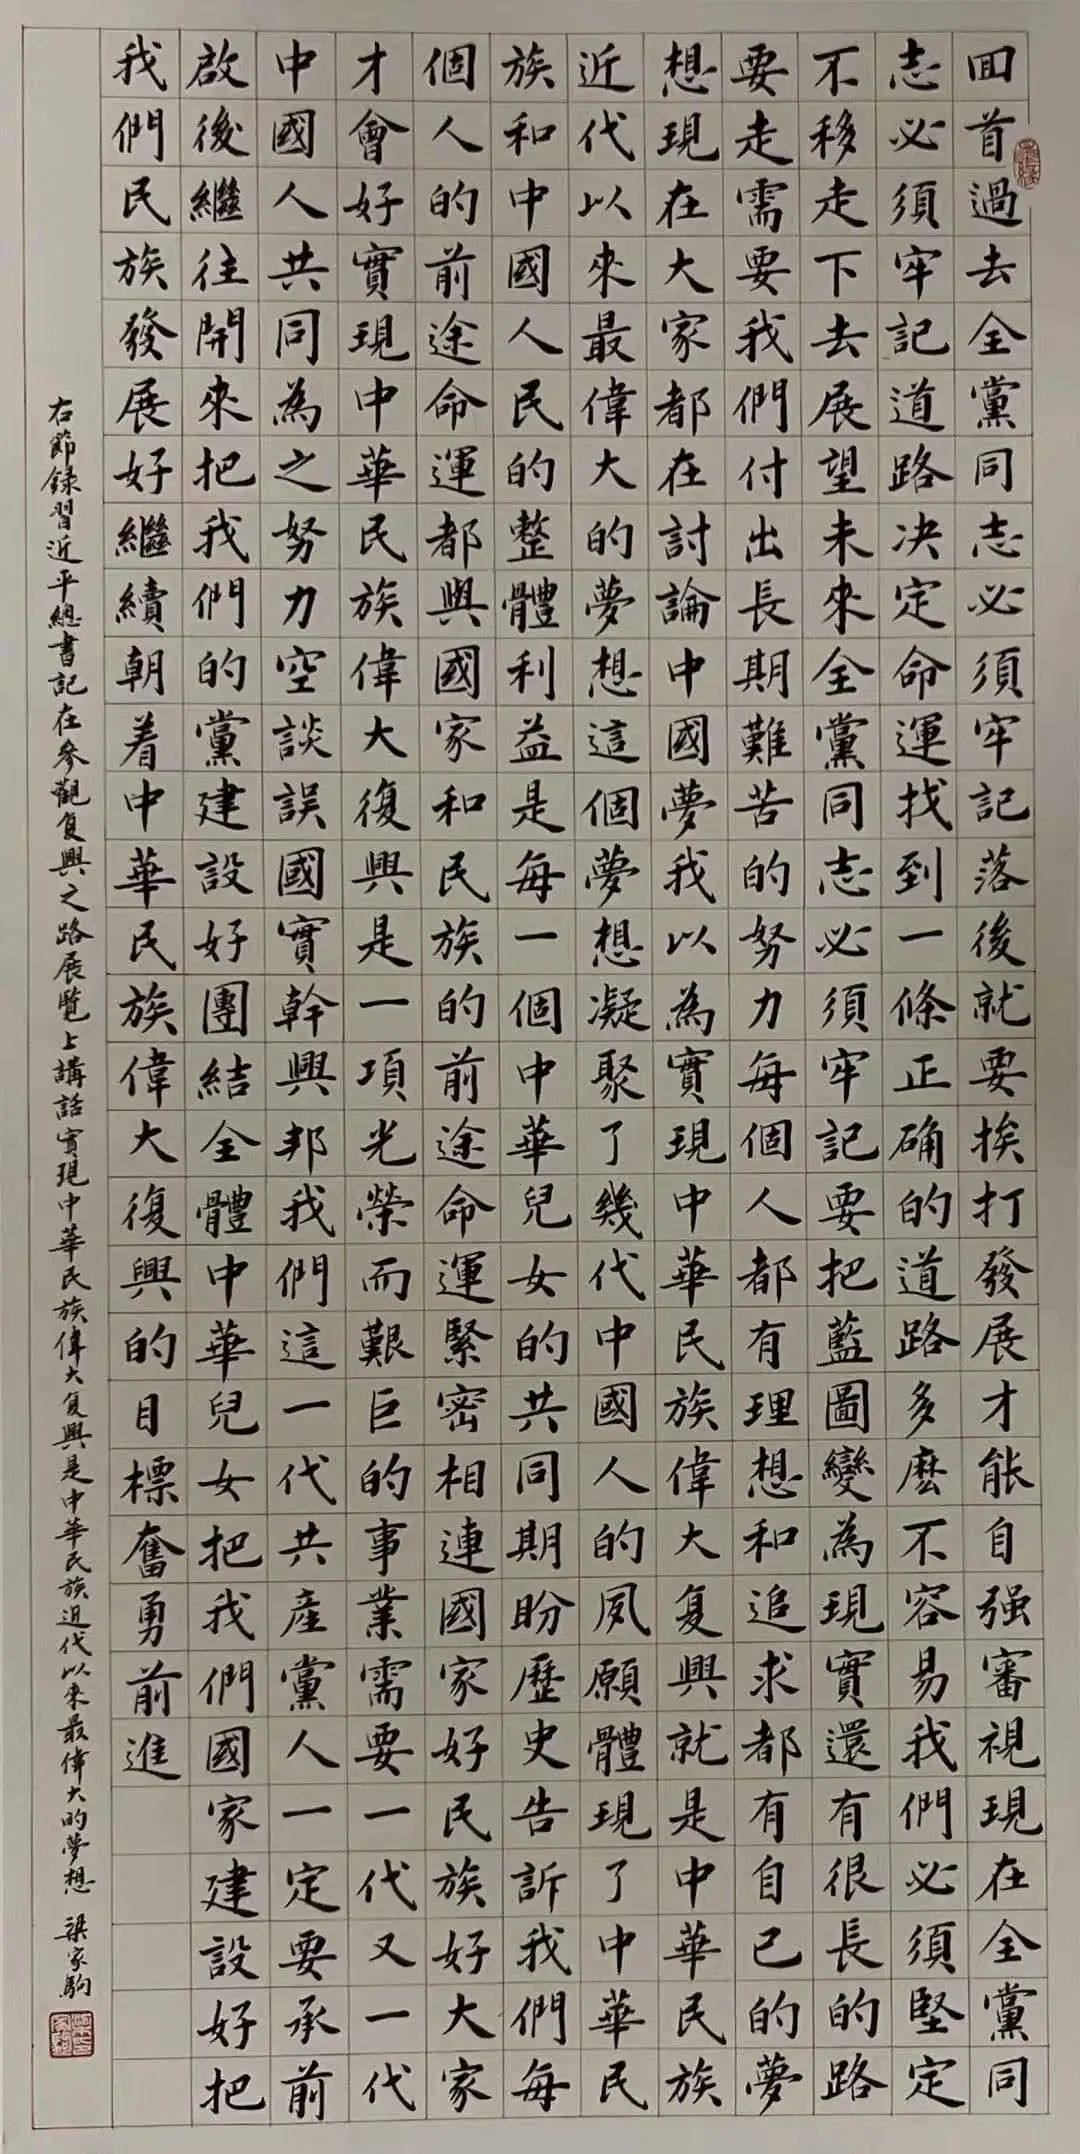 回首過去全黨同志必須牢記落後就要挨打發展才能自强審視現在全黨同
志必須牢記道路决定命運找到一條正确的道路多麽不容易我們必須堅定
不移走下去展望未來全黨同志必須牢記要把藍圖變為現實還有很長的路
要走需要我們付出長期難苦的努力每個人都有理想和追求都有自己的夢
想現在大家都在討論中國夢我以為實現中華民族偉大复興就是中華民族
近代以來最偉大的夢想這個夢想凝聚了幾代中國人的夙願體現了中華民
族和中國人民的整體利益是每一個中華兒女的共同期盼歷史告訴我們每
個人的前途命運都與國家和民族的前途命運緊密相連國家好民族好大家
才會好實現中華民族偉大復興是一項光榮而艱巨的事業需要一代又一代
中國人共同為之努力空談誤國實幹興邦我們這一代共産黨人一定要承前
啟後繼往開來把我們的黨建設好團結全體中華兒女把我們國家建設好把
我們民族發展好繼續朝着中華民族偉大復興的目標奮勇前進
右節録習近平總書記在參觀复興之路展覽上講話實現中華民族偉大复興是中華民族近代以來最偉大的夢想 梁家駒